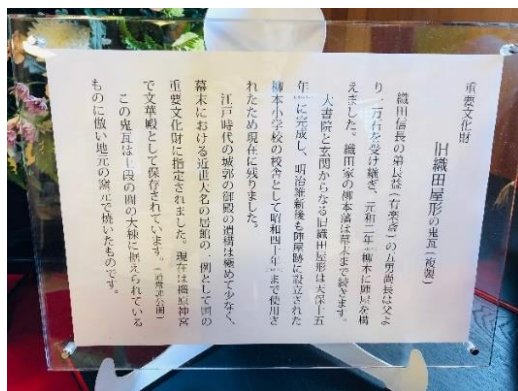 重要文化財
旧織田屋形の鬼瓦(複製)
織田信長の弟長益(有楽斎)の五男尚長は父よ
り一万石を受け継ぎ、元和二年柳本に陣屋を構
えました。織田家の柳本藩は幕末まで続きます。
大書院と玄関からなる旧織田屋形は天保十五
年に完成し、明治維新後も陣屋跡に設立された
柳本小学校の校舎として昭和四十年まで使用さ
れたため現在に残りました。
江戸時代の城郭の御殿の遺構は極めて少なく、
幕末における近世大名の居館の一例として国の
重要文化財に指定されました。現在は橿原神宮
で文華殿として保存されています。(通常非公開)
この鬼瓦は上段の間の大棟に据えられている
ものに倣い地元の窯元で焼いたものです。